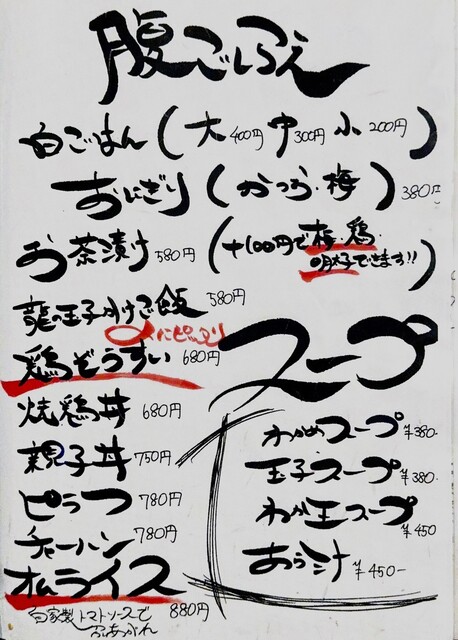 腹ごしらえ
白ごはん(大400円 中300円 小200円)
おにぎり(おつか・梅)380円
お茶漬け580円(+100円で梅・鶏・明太子できます!!)
龍の玉子かけご飯580円
鶏ぞうすい680円
スープ
焼鶏丼680円
親子丼750円
ピラフ780円
チャーハン780円
オムライス880円
自家製トマトソースで
おあがれ
わかめスープ¥380-
玉子スープ¥380-
わか玉スープ¥450
あら汁¥450-